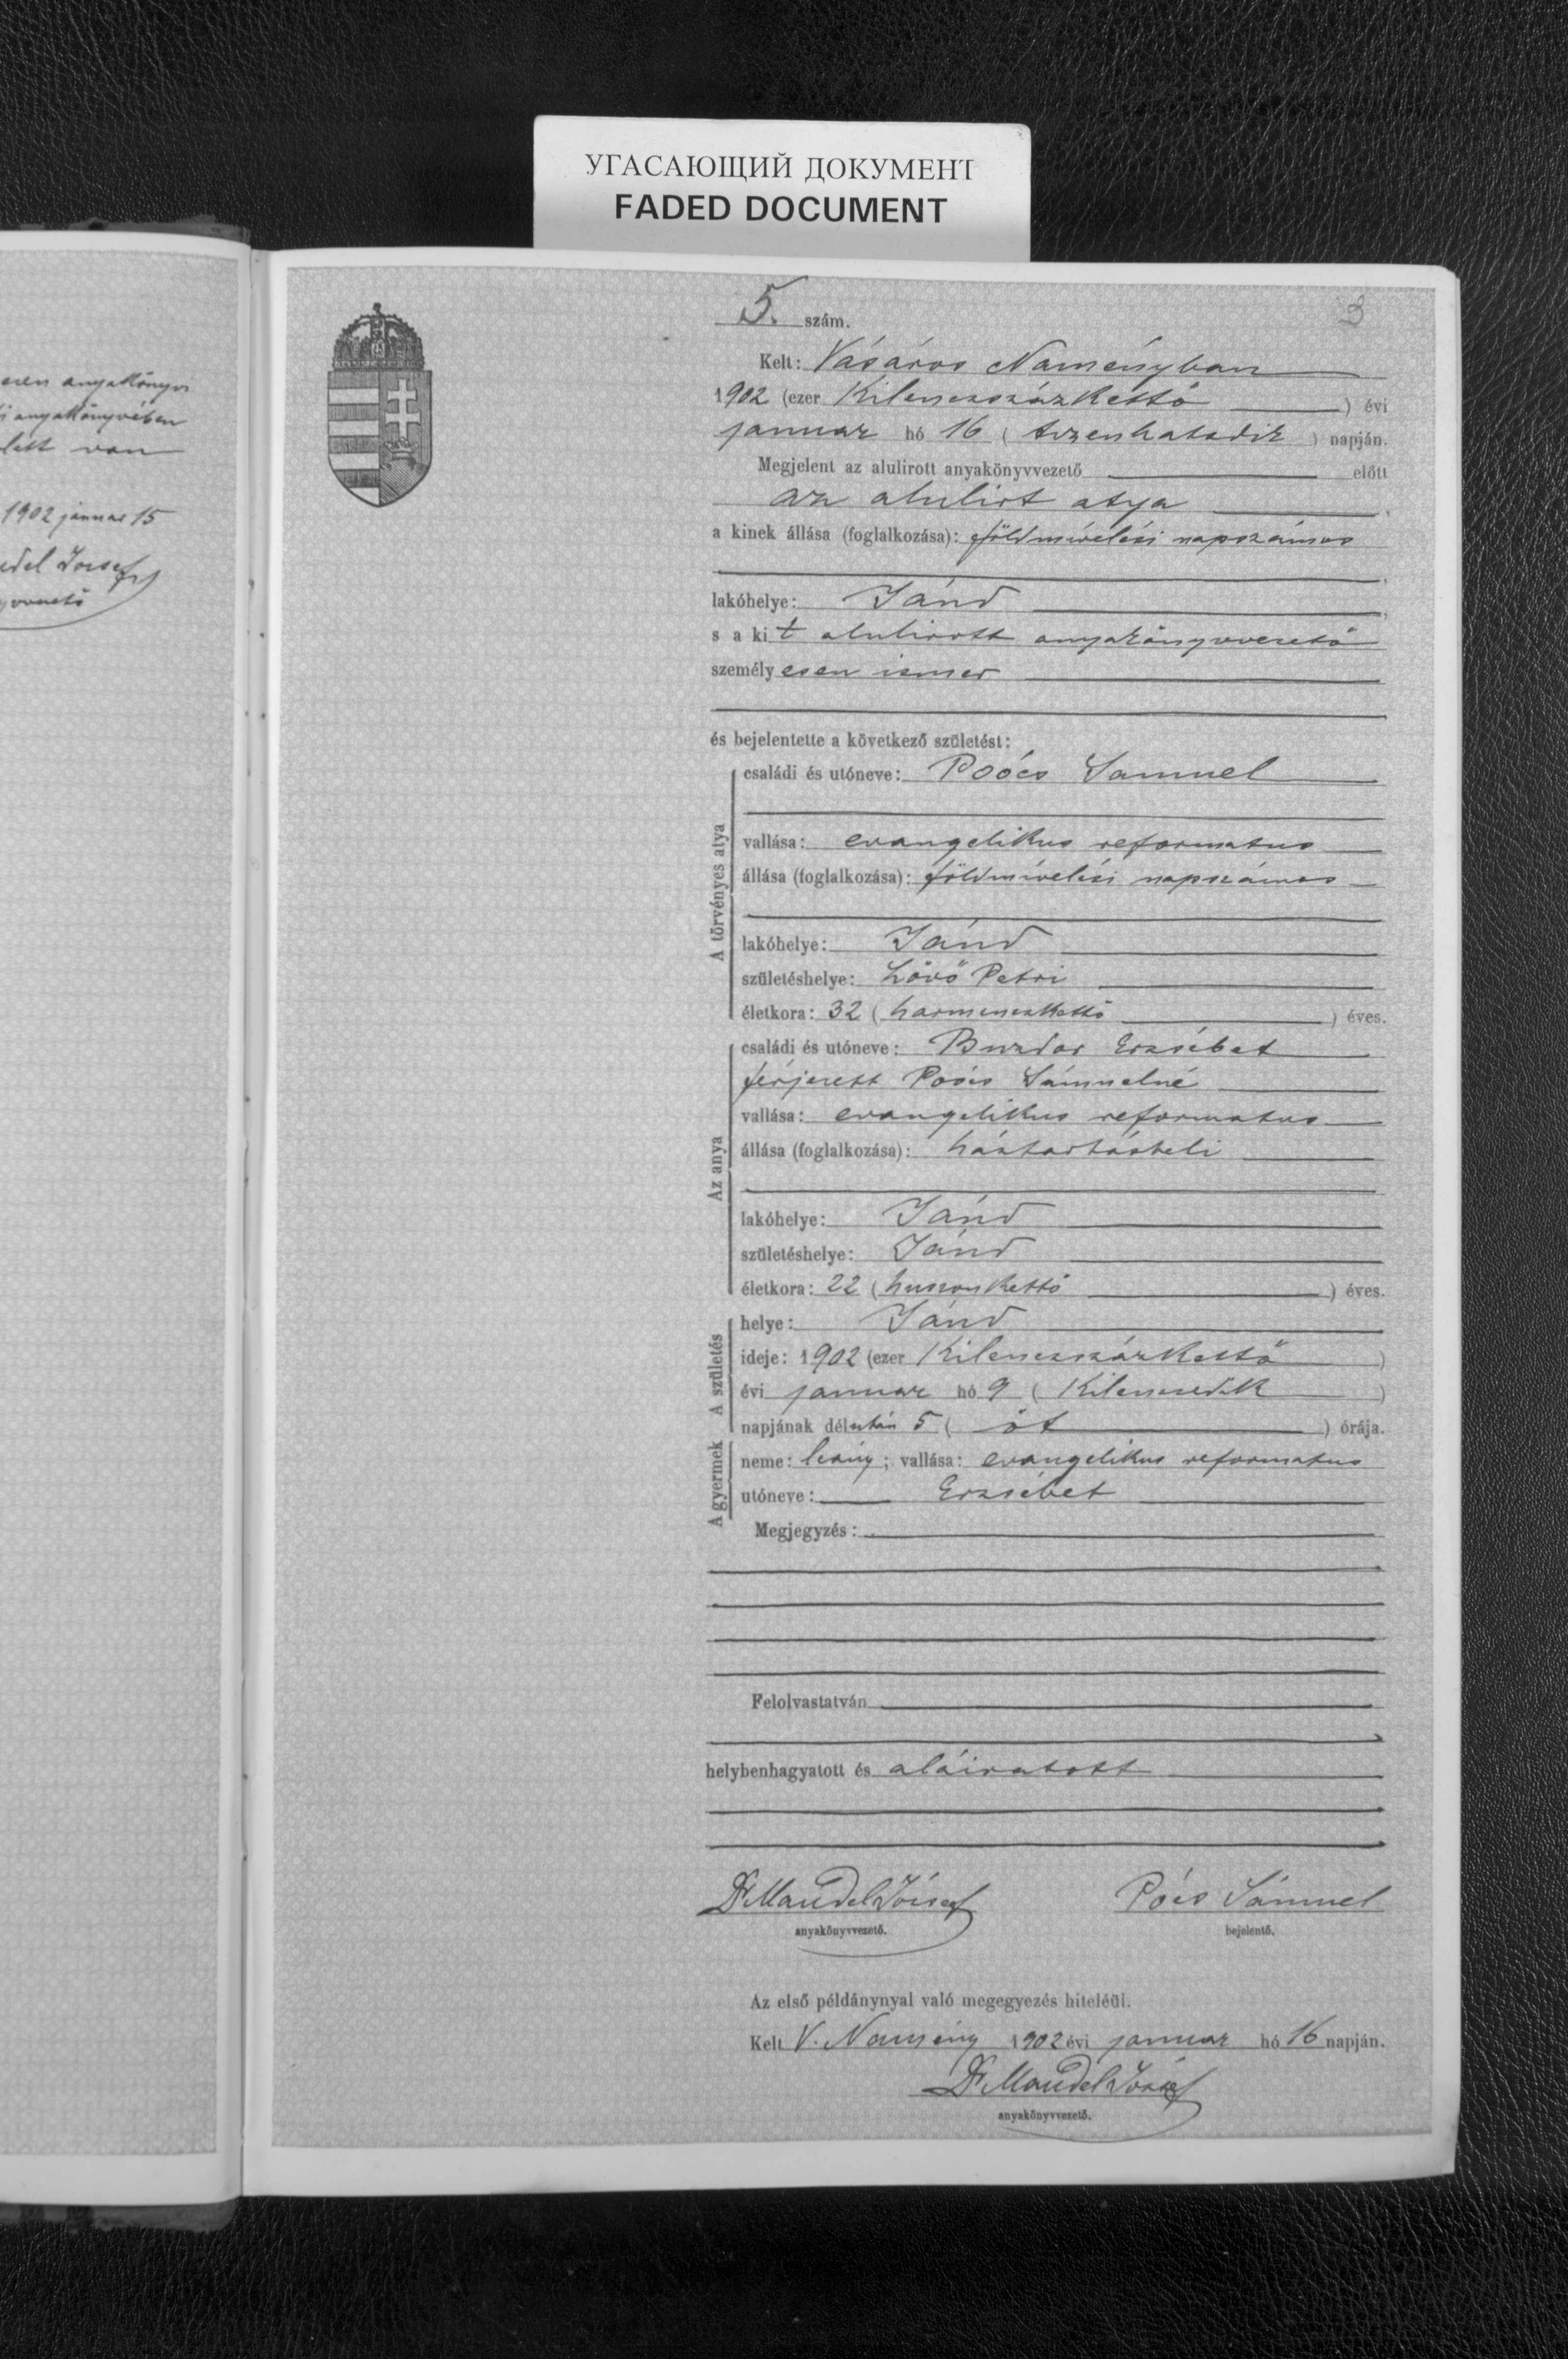 УГАСАЮЩИЙ ДОКУМЕНТ
FADED DOCUMENT
anyakönyvi
anyakönyvében
van
1902 januar 15
József
5. szám.
3
Kelt: Vásáros Naményban
1902 (ezer Kilenczszázkettő) évi
januar hó 16 (tizenhatodik) napján.
Megjelent az alulirott anyakönyvvezető előtt
az alulirt atya,
a kinek állása (foglalkozása): földmívelési napszámos
lakóhelye: Jánd,
s a kit alulirott anyakönyvvezető
személyesen ismer
és bejelentette a következő születést:
A törvényes atya
családi és utóneve: Poócs Samuel
vallása: evangelikus reformatus
állása (foglalkozása): földmívelési napszámos
lakóhelye: Jánd
születéshelye: Lövő Petri
életkora: 32 (harminczkettő) éves.
Az anya
családi és utóneve: Buzdor Erzsébet
férjezett Poócs Sámuelné
vallása: evangelikus reformatus
állása (foglalkozása): háztartásbeli
lakóhelye: Jánd
születéshelye: Jánd
életkora: 22 (huszonkettő) éves.
A születés
helye: Jánd
ideje: 1902 (ezer Kilenczszázkettő)
évi januar hó 9 (Kilenczedik)
napjának délután 5 (öt) órája.
A gyermek
neme: leány; vallása: evangelikus reformatus
utóneve: Erzsébet
Megjegyzés:
Felolvastatván
helybenhagyatott és aláiratott
Dr Mandel József
anyakönyvvezető.
Pócs Sámuel
bejelentő.
Az első példánynyal való megegyezés hiteléül.
Kelt V. Namény 1902 évi januar hó 16 napján.
Dr Mandel József
anyakönyvvezető.